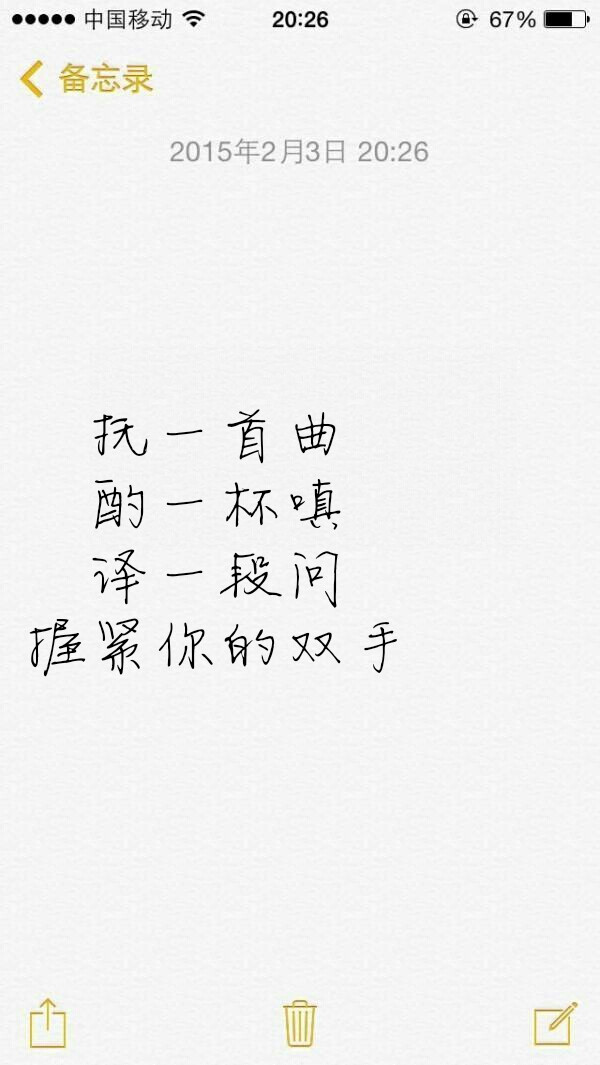 中国移动 20:26 67%
备忘录
2015年2月3日 20:26
抚一首曲
酌一杯嗔
译一段问
握紧你的双手